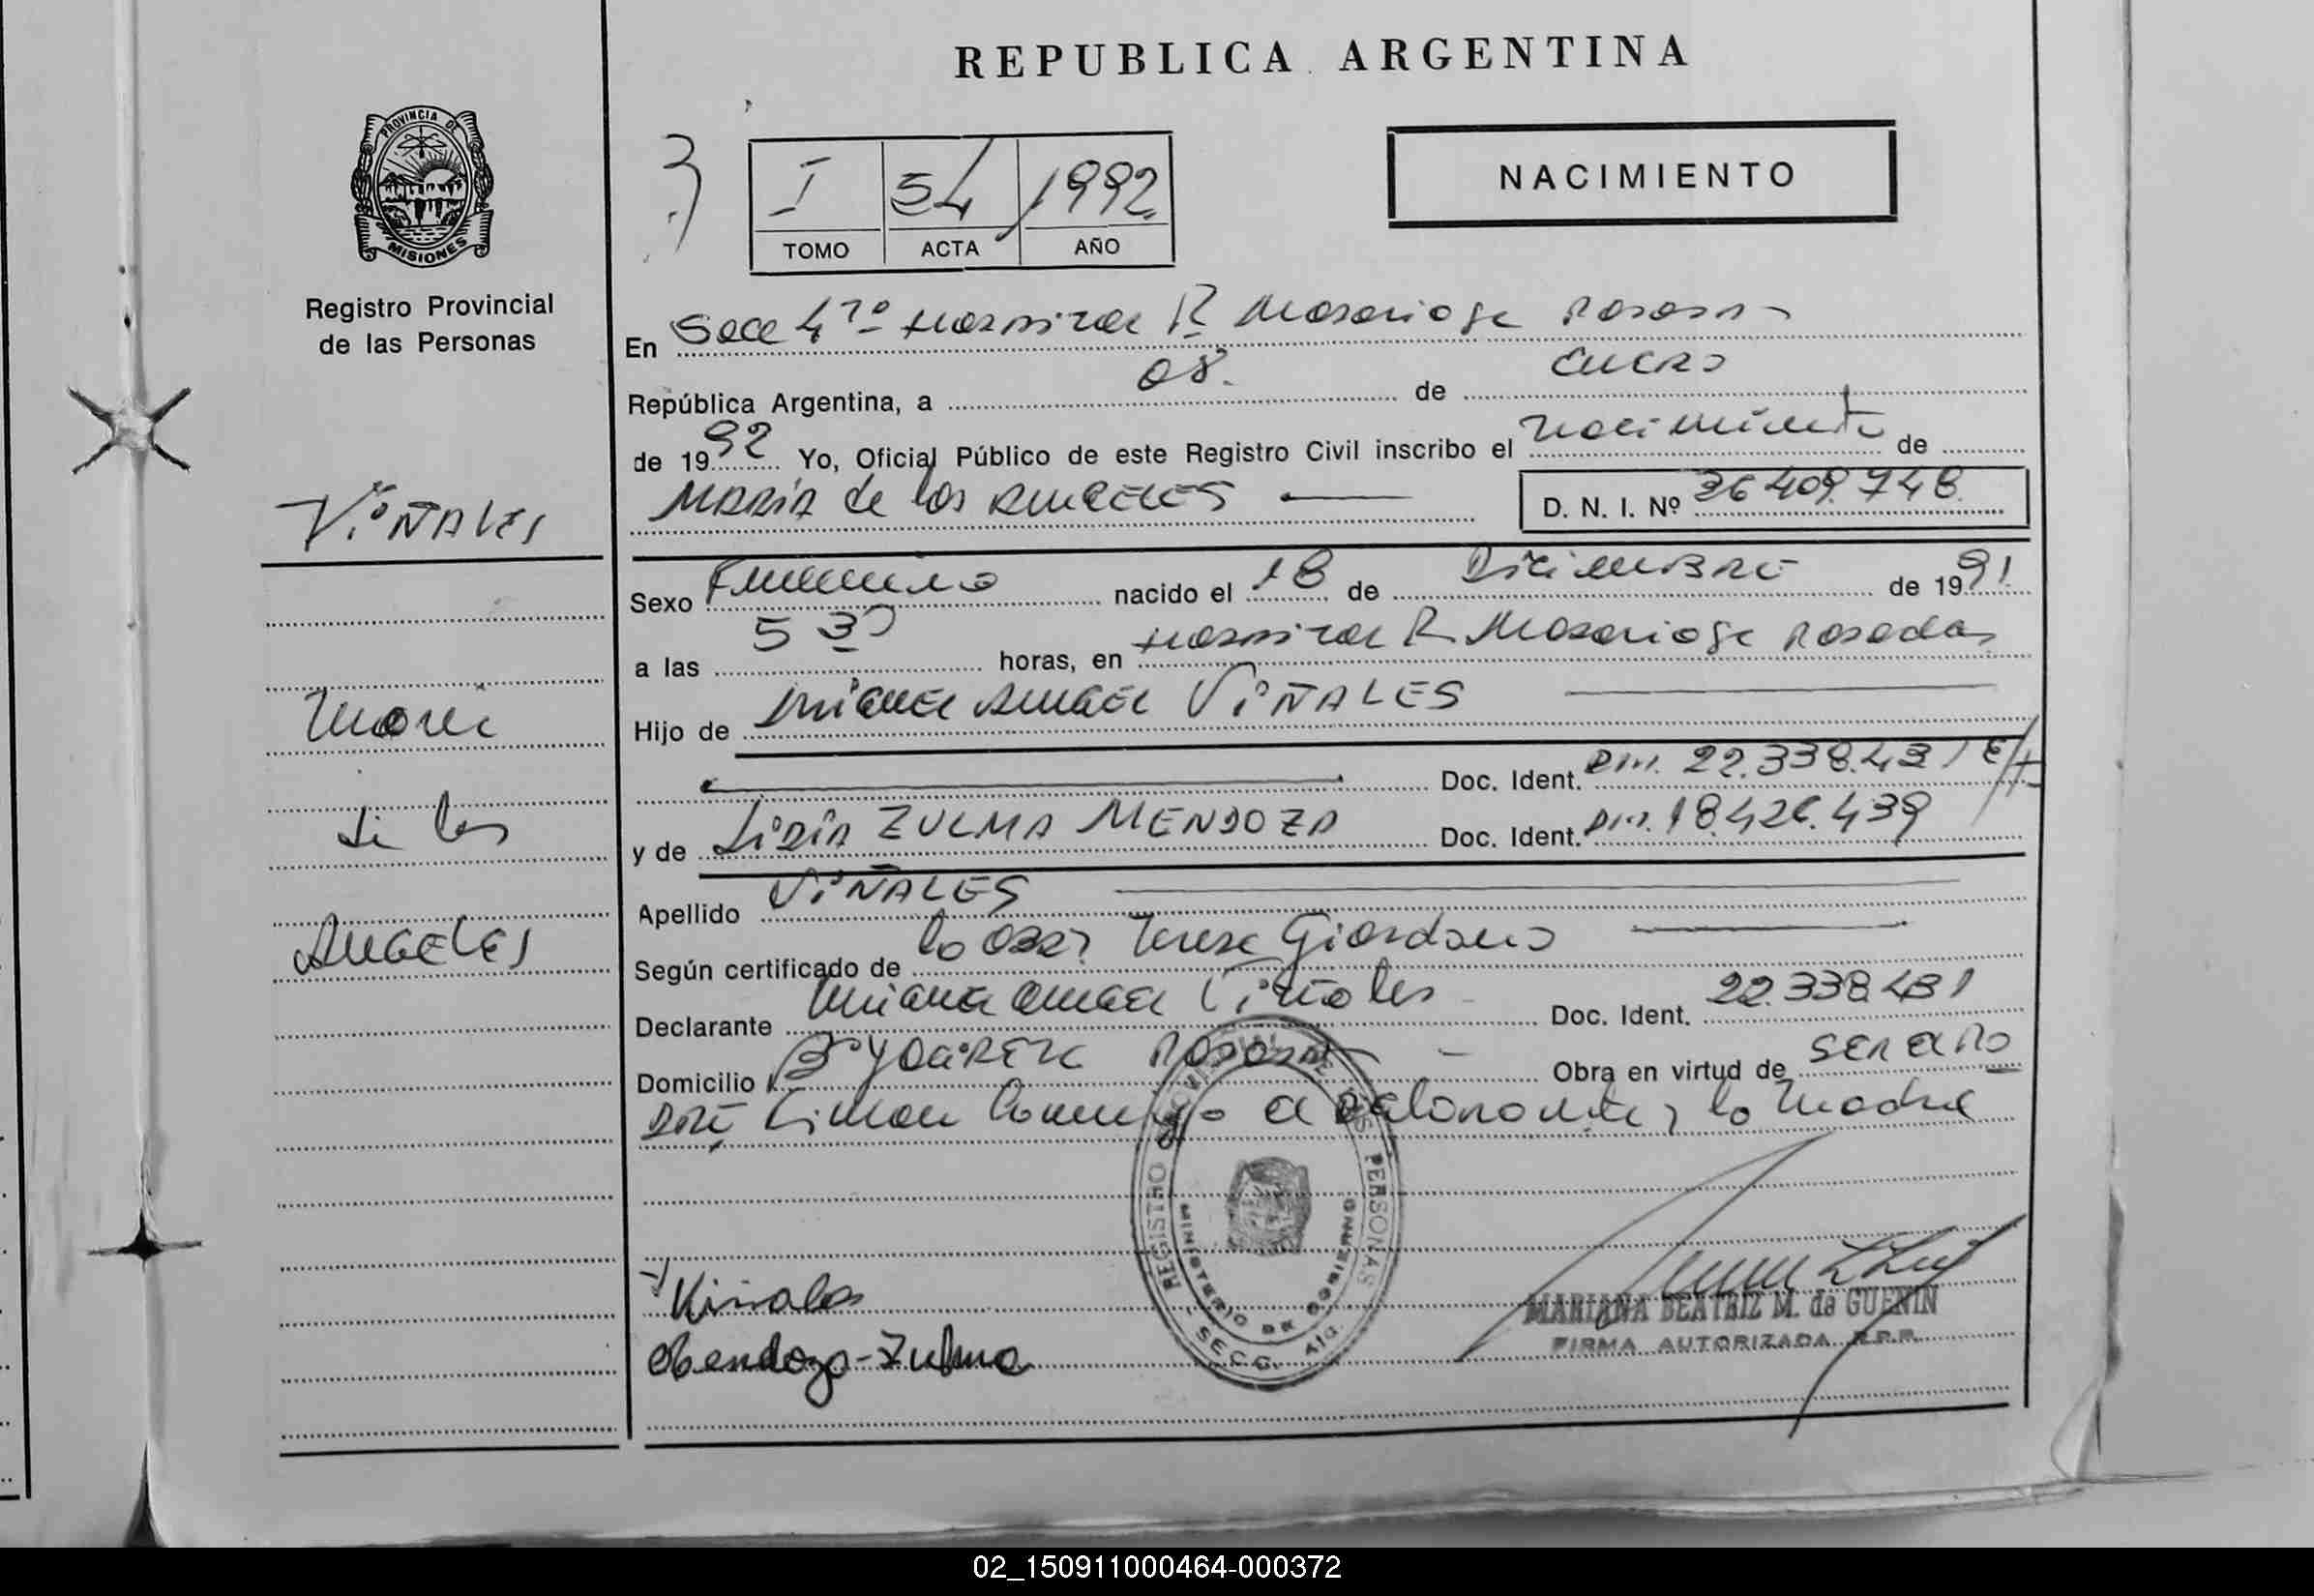 REPUBLICA ARGENTINA
PROVINCIA DE
MISIONES
Registro Provincial
de las Personas
I 54 1992
TOMO ACTA AÑO
NACIMIENTO
En Secc 4ta Hospital R Madariaga Posadas
República Argentina, a 08. de Enero
de 1992 Yo, Oficial Público de este Registro Civil inscribo el nacimiento de
MARIA de los ANGELES D. N. I. Nº 36 409 748
VIÑALES
Maria
de los
ANGELES
Sexo Femenino nacido el 18 de Diciembre de 1991
a las 5 30 horas, en Hospital R Madariaga Posadas
Hijo de Miguel Angel VIÑALES
Doc. Ident. DNI. 22.338.431
y de LIDIA ZULMA MENDOZA Doc. Ident. DNI. 18.426.439
Apellido VIÑALES
Según certificado de la Obst. Teresa Giordano
Declarante Miguel Angel Viñales Doc. Ident. 22.338.431
Domicilio Posadas Obra en virtud de ser el PD
Dre Firman Conmigo el declarante y la Madre
REGISTRO PROVINCIAL DE LAS PERSONAS
MINISTERIO DE GOBIERNO
SECC. 4ta.
Viñales
Mendoza Zulma
MARIANA BEATRIZ M. de GUENIN
FIRMA AUTORIZADA R.P.P.
02_150911000464-000372